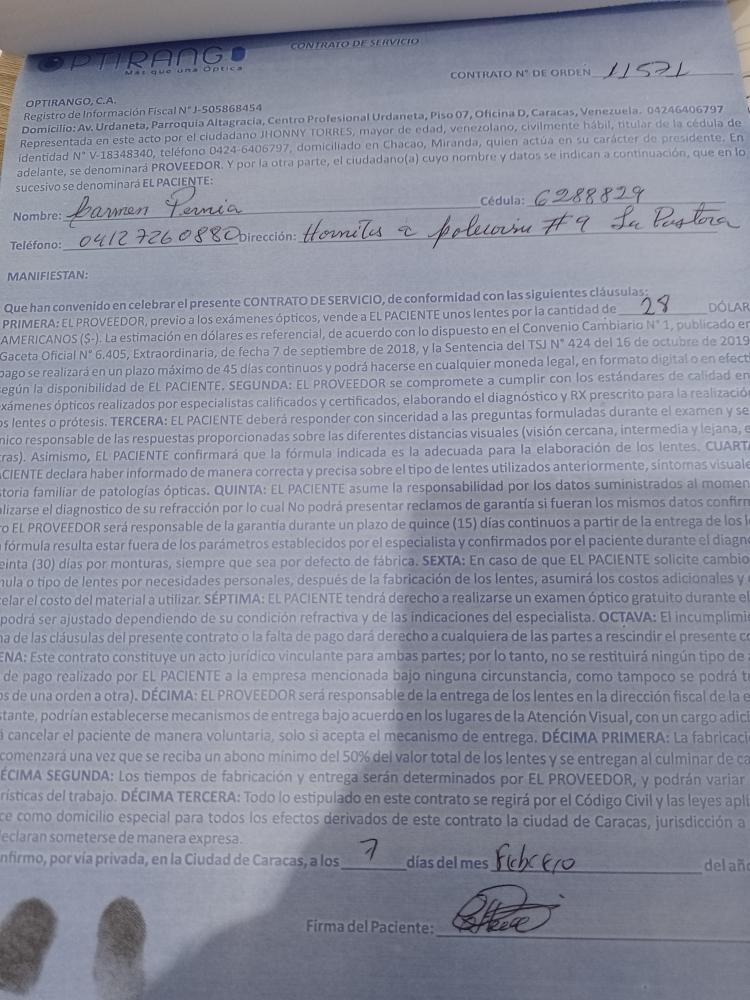 OPTIRANGO
Más que una Óptica
CONTRATO DE SERVICIO
CONTRATO N° DE ORDEN 11571
OPTIRANGO, C.A.
Registro de Información Fiscal N° J-505868454
Domicilio: Av. Urdaneta, Parroquia Altagracia, Centro Profesional Urdaneta, Piso 07, Oficina D, Caracas, Venezuela. 04246406797
Representada en este acto por el ciudadano JHONNY TORRES, mayor de edad, venezolano, civilmente hábil, titular de la cédula de
identidad N° V-18348340, teléfono 0424-6406797, domiciliado en Chacao, Miranda, quien actúa en su carácter de presidente. En
adelante, se denominará PROVEEDOR. Y por la otra parte, el ciudadano(a) cuyo nombre y datos se indican a continuación, que en lo
sucesivo se denominará EL PACIENTE:
Nombre: Carmen Pernia Cédula: 6288829
Teléfono: 04127260880 Dirección: Hornitos a # 9 La Pastora
MANIFIESTAN:
Que han convenido en celebrar el presente CONTRATO DE SERVICIO, de conformidad con las siguientes cláusulas:
PRIMERA: EL PROVEEDOR, previo a los exámenes ópticos, vende a EL PACIENTE unos lentes por la cantidad de 28 DÓLAR
AMERICANOS ($-). La estimación en dólares es referencial, de acuerdo con lo dispuesto en el Convenio Cambiario N° 1, publicado en
Gaceta Oficial N° 6.405, Extraordinaria, de fecha 7 de septiembre de 2018, y la Sentencia del TSJ N° 424 del 16 de octubre de 2019
pago se realizará en un plazo máximo de 45 días continuos y podrá hacerse en cualquier moneda legal, en formato digital o en efecti
según la disponibilidad de EL PACIENTE. SEGUNDA: EL PROVEEDOR se compromete a cumplir con los estándares de calidad en
exámenes ópticos realizados por especialistas calificados y certificados, elaborando el diagnóstico y RX prescrito para la realizació
os lentes o prótesis. TERCERA: EL PACIENTE deberá responder con sinceridad a las preguntas formuladas durante el examen y se
nico responsable de las respuestas proporcionadas sobre las diferentes distancias visuales (visión cercana, intermedia y lejana, e
ras). Asimismo, EL PACIENTE confirmará que la fórmula indicada es la adecuada para la elaboración de los lentes. CUARTA
ACIENTE declara haber informado de manera correcta y precisa sobre el tipo de lentes utilizados anteriormente, síntomas visuale
storia familiar de patologías ópticas. QUINTA: EL PACIENTE asume la responsabilidad por los datos suministrados al momen
alizarse el diagnostico de su refracción por lo cual No podrá presentar reclamos de garantía si fueran los mismos datos confirm
ro EL PROVEEDOR será responsable de la garantía durante un plazo de quince (15) días continuos a partir de la entrega de los l
fórmula resulta estar fuera de los parámetros establecidos por el especialista y confirmados por el paciente durante el diagn
einta (30) días por monturas, siempre que sea por defecto de fábrica. SEXTA: En caso de que EL PACIENTE solicite cambio
mula o tipo de lentes por necesidades personales, después de la fabricación de los lentes, asumirá los costos adicionales y
elar el costo del material a utilizar. SÉPTIMA: EL PACIENTE tendrá derecho a realizarse un examen óptico gratuito durante el
podrá ser ajustado dependiendo de su condición refractiva y de las indicaciones del especialista. OCTAVA: El incumplimi
na de las cláusulas del presente contrato o la falta de pago dará derecho a cualquiera de las partes a rescindir el presente co
ENA: Este contrato constituye un acto jurídico vinculante para ambas partes; por lo tanto, no se restituirá ningún tipo de
de pago realizado por EL PACIENTE a la empresa mencionada bajo ninguna circunstancia, como tampoco se podrá t
os de una orden a otra). DÉCIMA: EL PROVEEDOR será responsable de la entrega de los lentes en la dirección fiscal de la e
stante, podrían establecerse mecanismos de entrega bajo acuerdo en los lugares de la Atención Visual, con un cargo adici
á cancelar el paciente de manera voluntaria, solo si acepta el mecanismo de entrega. DÉCIMA PRIMERA: La fabricaci
comenzará una vez que se reciba un abono mínimo del 50% del valor total de los lentes y se entregan al culminar de ca
ÉCIMA SEGUNDA: Los tiempos de fabricación y entrega serán determinados por EL PROVEEDOR, y podrán variar
rísticas del trabajo. DÉCIMA TERCERA: Todo lo estipulado en este contrato se regirá por el Código Civil y las leyes apli
ce como domicilio especial para todos los efectos derivados de este contrato la ciudad de Caracas, jurisdicción a
eclaran someterse de manera expresa.
nfirmo, por vía privada, en la Ciudad de Caracas, a los 7 días del mes Febrero del año
Firma del Paciente: